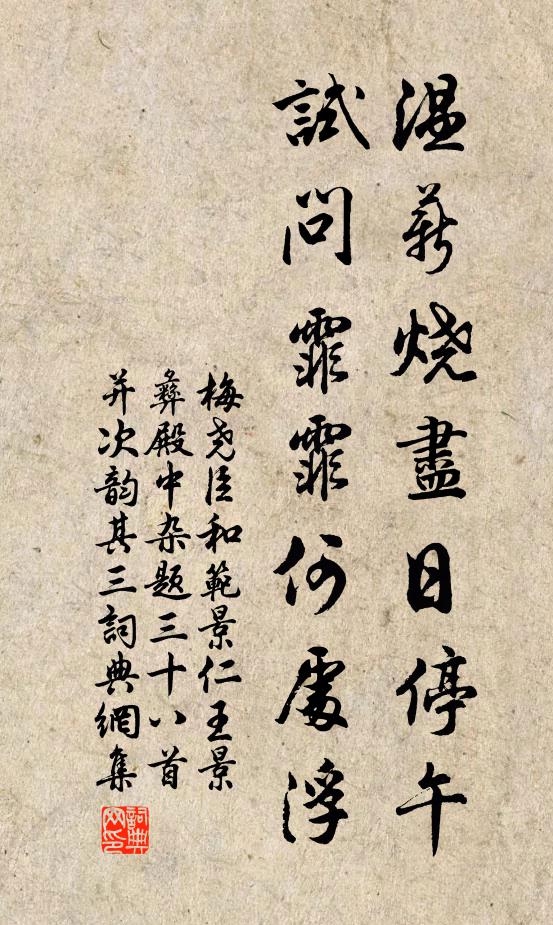 温薪烧盡日停午
試問霏霏何處浮
梅尧臣和範景仁王景
彝殿中杂题三十八首
并次韵其三詞典網集
詞典网印